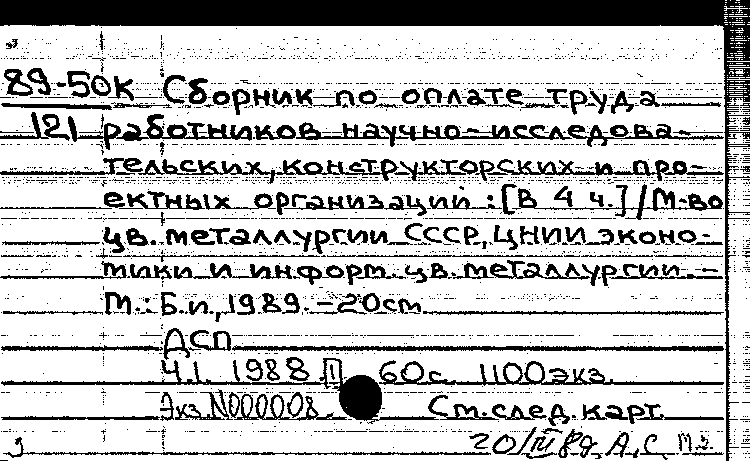 89-50К Сборник по оплате труда
121 работников научно-исследова-
тельских, конструкторских и про-
ектных организаций : [В 4 ч.] / М-во
цв. металлургии СССР, ЦНИИ эконо-
мики и информ. цв. металлургии. -
М. : Б.и., 1989. - 20см
ДСП
Ч.1. 1988 60с. 1100экз.
Экз. N000008. См. след. карт.
20/III 89, А.С.